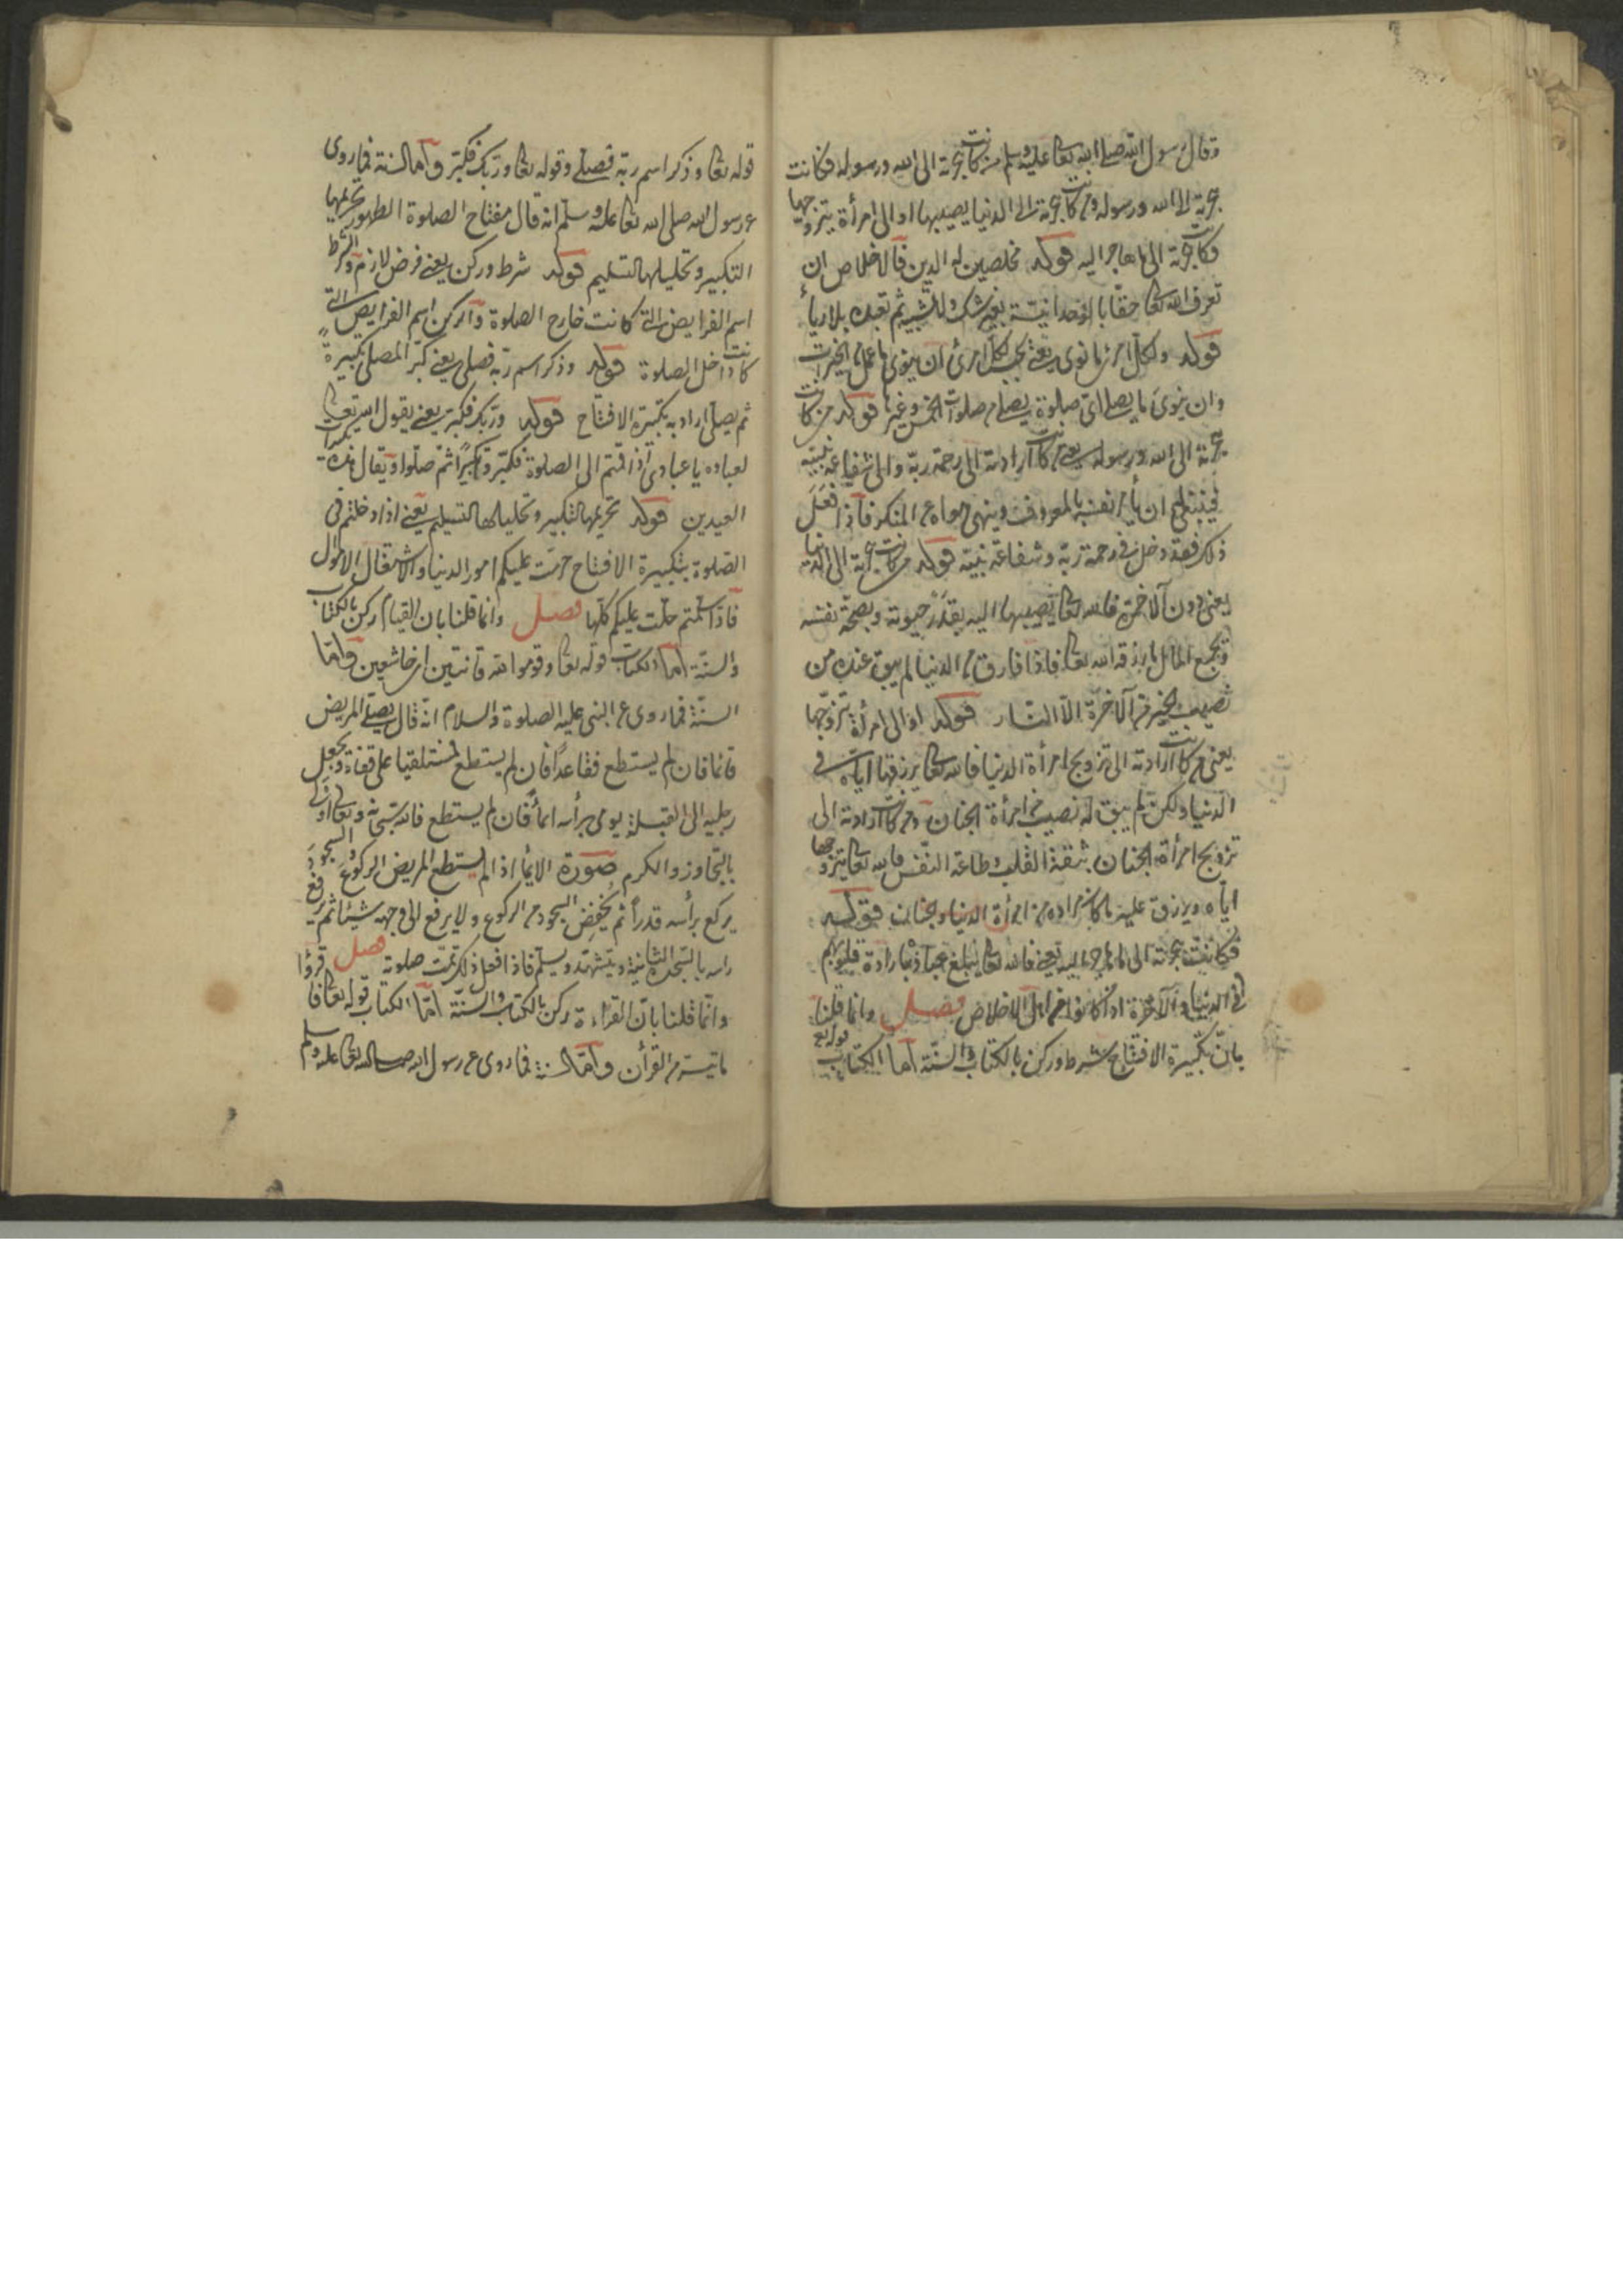 وقال رسول الله صلى الله تعا عليه وسلم من كانت هجرته الى الله ورسوله فكانت
هجرته الى الله ورسوله ومن كانت هجرته الى الدنيا يصيبها او الى امرأة يتزوجها
فكانت هجرته الى ما هاجر اليه قوله مخلصين له الدين فالاخلاص ان
تعرف الله تعا حقا بالوحدانية بغير شك ولا تشبيه ثم تعبده بلا رياء
قوله ولكل امرئ ما نوى يعنى يجب لكل امرئ ان ينوى ما عمل من الخيرات
وان ينوى ما يصلى اى صلوة يصلى من صلوات الخمس وغيرها قوله من كانت
هجرته الى الله ورسوله يعنى من كانت ارادته الى رحمة ربه والى شفاعة نبيه
فينبغى ان يأمر نفسه بالمعروف وينهى هواه عن المنكر فاذا فعل
ذلك فقد دخل فى رحمة ربه وشفاعة نبيه قوله من كانت هجرته الى الدنيا
يعنى من دون الآخرة فالله تعا يصيبها اليه بقدر حيوته وبصحة نفسه
وبجمع المال ما رزقه الله تعا فاذا فارق من الدنيا لم يبق عنده من
نصيب الخير فى الآخرة الا النار قوله او الى امرأة يتزوجها
يعنى من كانت ارادته الى تزويج امرأة الدنيا فالله تعا يرزقها اياه فى
الدنيا ولكن لم يبق له نصيب من امرأة الجنان ومن كانت ارادته الى
تزويج امرأة الجنان بثقة القلب وطاعة النفس فالله تعا يتزوجها
اياه ويرزق عليه ما كان مراده من امرأة الدنيا والجنان قوله
فكانت هجرته الى ما هاجر اليه يعنى فالله تعا يبلغ عباده بارادة قلوبهم
فى الدنيا والآخرة اذا كانوا من اهل الاخلاص فصل وانما قلنا
بان تكبيرة الافتتاح شرط وركن بالكتاب والسنة اما الكتاب قوله تع
قوله تعا وذكر اسم ربه فصلى وقوله تعا وربك فكبر واما السنة فما روى
عن رسول الله صلى الله تعا عليه وسلم انه قال مفتاح الصلوة الطهور تحريمها
التكبير وتحليلها التسليم قوله شرط وركن يعنى فرض لازم والشرط
اسم الفرايض التى كانت خارج الصلوة والركن اسم الفرايض التى
كانت داخل الصلوة قوله وذكر اسم ربه فصلى يعنى كبر المصلى تكبيرة
ثم يصلى اراد به تكبيرة الافتتاح قوله وربك فكبر يعنى يقول الله تعا
لعباده يا عبادى اذا قمتم الى الصلوة فكبروا تكبيرًا ثم صلوا ويقال هذه تكبيرات
العيدين قوله تحريمها التكبير وتحليلها التسليم يعنى اذا دخلتم فى
الصلوة بتكبيرة الافتتاح حرمت عليكم امور الدنيا والاشتغال الاموال
فاذا سلمتم حلت عليكم كلها فصل وانما قلنا بان القيام ركن بالكتاب
والسنة اما الكتاب قوله تعا وقوموا لله قانتين اى خاشعين واما
السنة فما روى عن النبى عليه الصلوة والسلام انه قال يصلى المريض
قائما فان لم يستطع فقاعدًا فان لم يستطع فمستلقيا على قفاه ويجعل
رجليه الى القبلة يومى برأسه ايماء فان لم يستطع فالله سبحانه وتعا اولى
بالتجاوز والكرم صورة الايماء اذا لم يستطع المريض الركوع والسجود
يركع برأسه قدرًا ثم يخفض السجود من الركوع ولا يرفع الى وجهه شيئا ثم يرفع
راسه بالسجدة الثانية ويتشهد ويسلم فاذا فعل ذلك تمت صلوته فصل
وانما قلنا بان القراءة ركن بالكتاب والسنة اما الكتاب قوله تعا فاقرؤا
ما تيسر من القرأن واما السنة فما روى عن رسول الله صلى الله تعا عليه وسلم